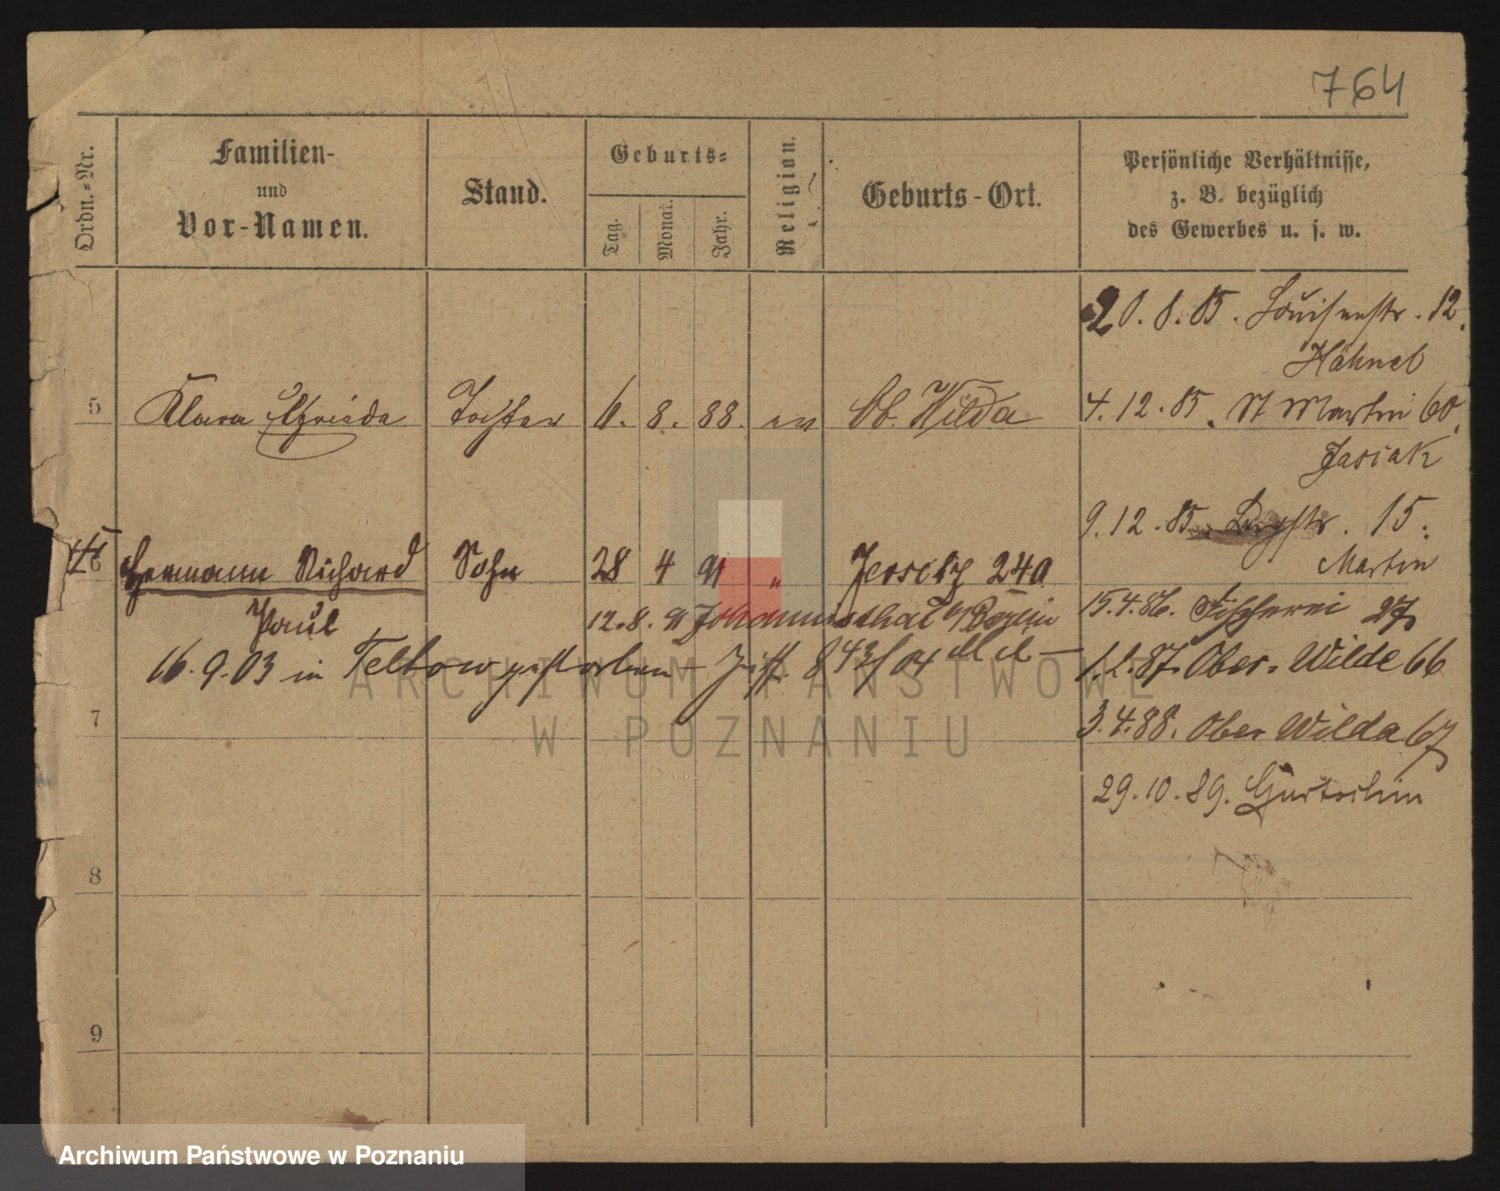 764
Ordn.-Nr.
Familien-
und
Vor-Namen.
Stand.
Geburts-
Tag.
Monat.
Jahr.
Religion.
Geburts-Ort.
Persönliche Verhältnisse,
z. B. bezüglich
des Gewerbes u. s. w.
20.8.85. Louisenstr. 12.
Hähnel
5 Klara Elfriede Tochter 6. 8. 88. ev Ob. Wilda
4.12.85. St Martin 60.
Jasiak
9.12.85. 15.
Martin
6 Hermann Richard Sohn 28 4 91 " Jersitz 24a
Paul
12.8.91 Johannisthal b/Berlin
15.4.86. Fischerei 27
16.9.03 in Teltow gestorben
1.1.87. Ober-Wilda 66
7
3.4.88. Ober Wilda 67
29.10.89. Gurtschin
8
9
ARCHIWUM PAŃSTWOWE
W POZNANIU
Archiwum Państwowe w Poznaniu